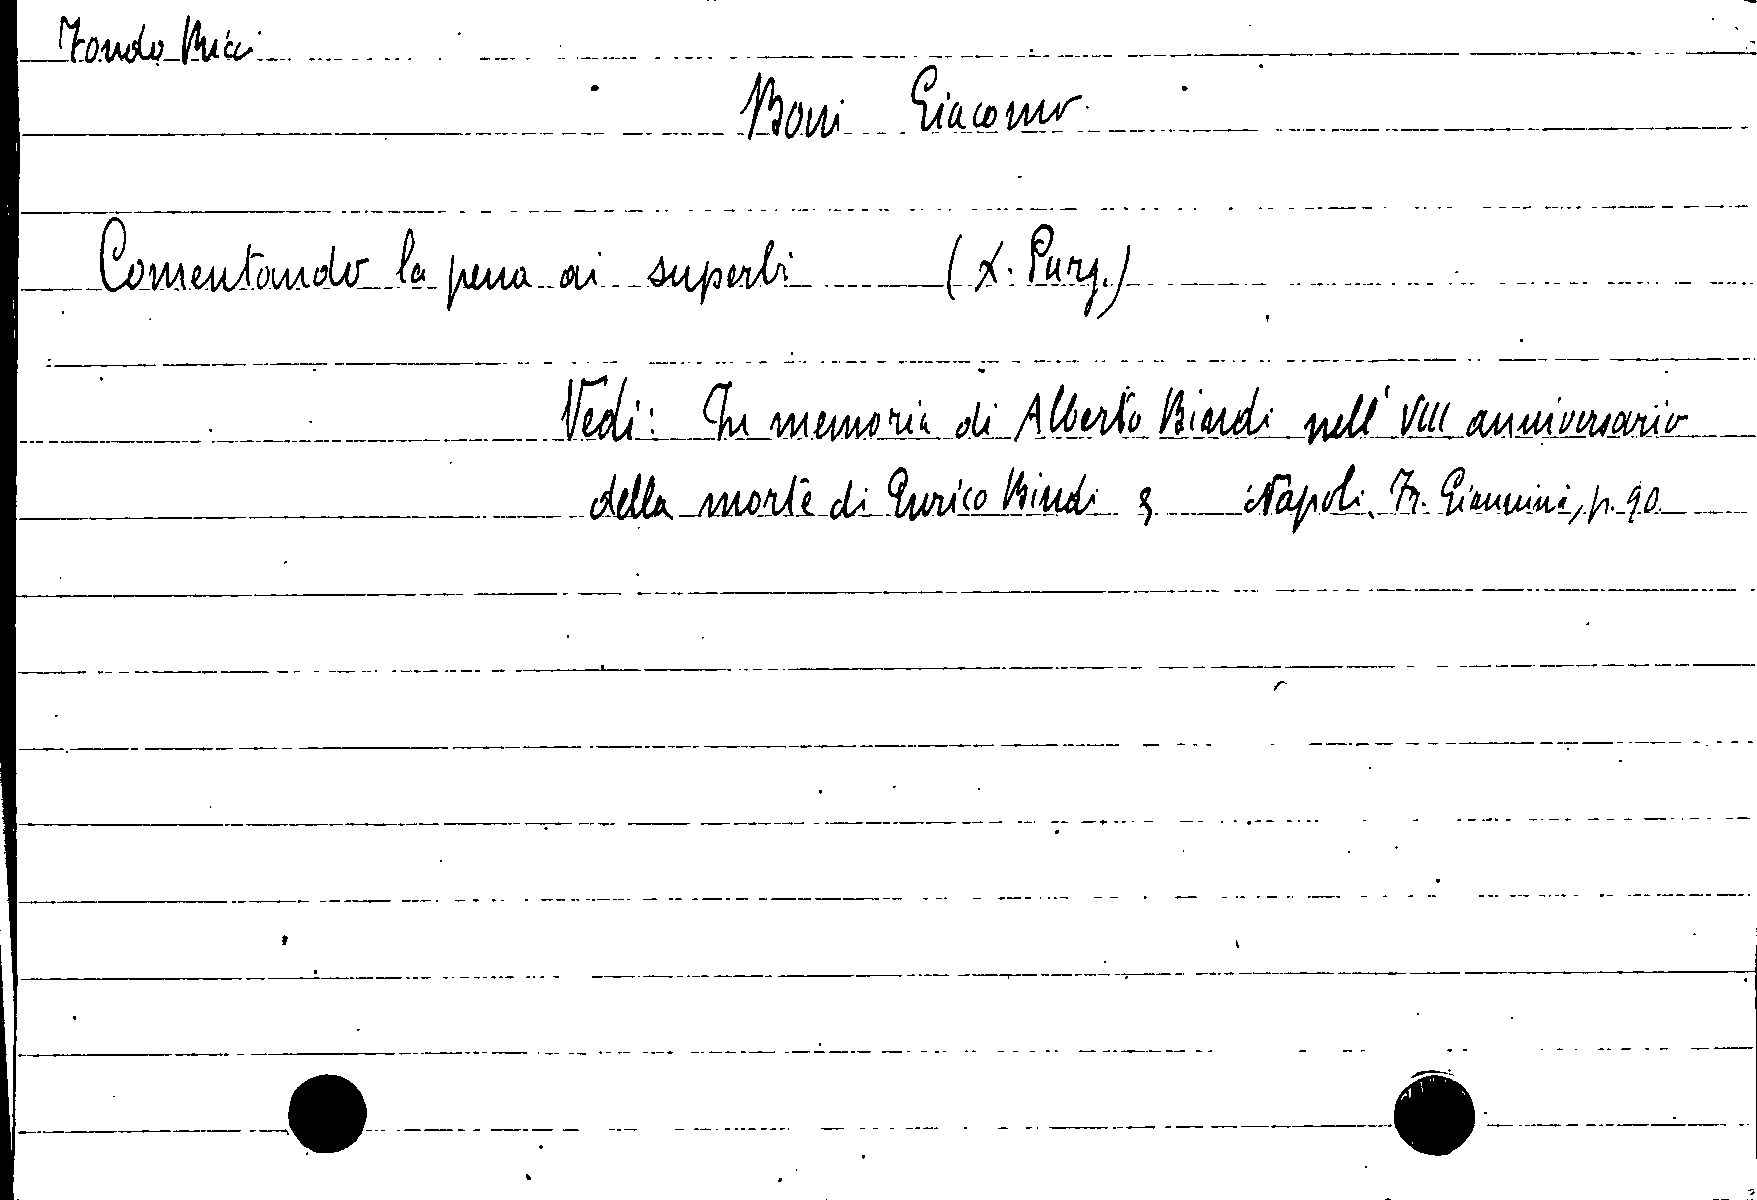 Fondo Ricci
Boni Giacomo
Comentando la pena ai superbi (X. Purg.)
Vedi: In memoria di Alberto Bindi nell' VIII anniversario
della morte di Enrico Bindi Napoli, Fr. Giannini, p. 90